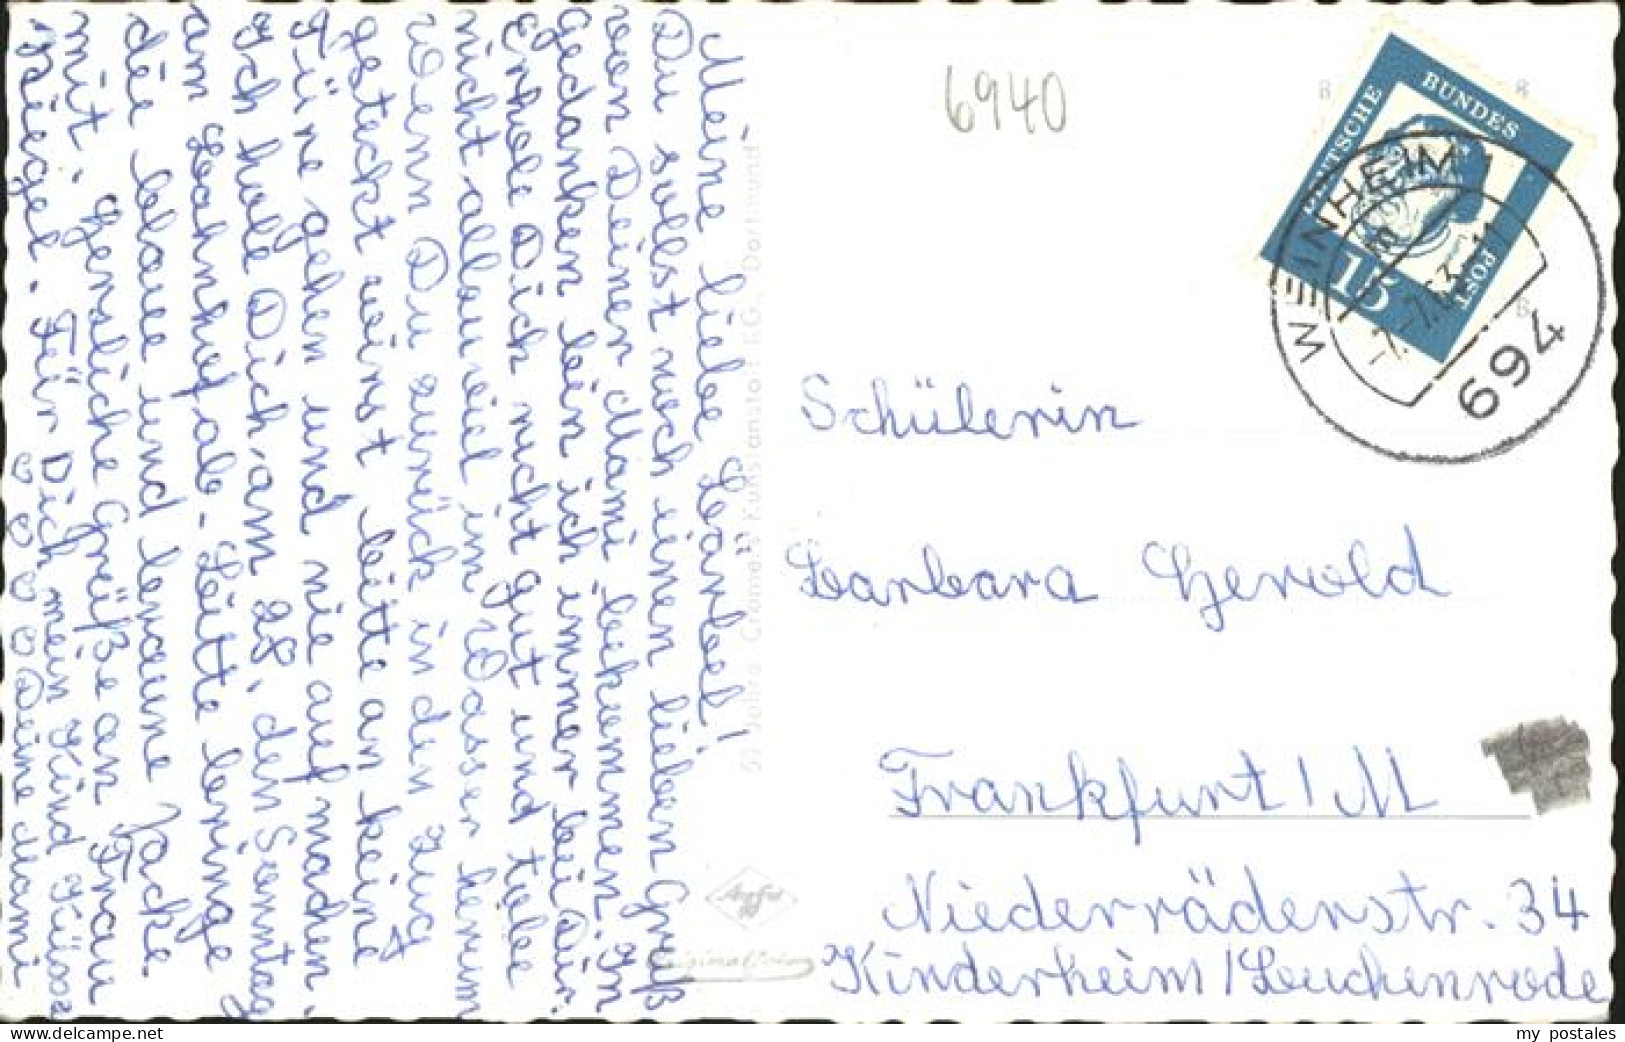 Meine liebe Bärbel!
Du sollst noch einen lieben Gruß
von Deiner Mami bekommen. In
Gedanken bin ich immer bei Dir.
Erhole Dich recht gut und tobe
nicht allzu viel im Wasser herum
Wenn Du zurück in den Zug
gesteckt wirst bitte an keine
Türe gehen und nie aufmachen.
Ich hole Dich am 28. den Sonntag
am Bahnhof ab. Bitte bringe
die blaue und braune Jacke
mit. Herzliche Grüße an Frau
Riegel. Für Dich mein Kind Küsse
Deine Mami
50 Jahre Cramers Kunstanstalt KG, Dortmund
Agfa
Original
6940
DEUTSCHE BUNDESPOST
15
WEINHEIM
694
Schülerin
Barbara Herold
Frankfurt / M
Niederrädenstr. 34
Kinderheim / Buchenrode
my postales